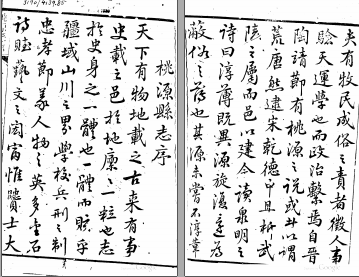 桃源縣志序
天下有物地載之古来有事
史載之邑於地廪之一粒也志
於史身之一體也一體而賅乎
疆域山川之界學校兵刑之制
忠孝節義人物之英多金石
詩賦藝文之閎富惟贒士大
夫有牧民成俗之責者徵人事
騐天運學也而政治繫焉自晉
陶靖節有桃源之說或斗以謂
荒唐然建宋乾德中且析武
陵之屬而邑以建今讀泉明之
詩曰淳薄既異源旋復還為
蔽俗之薄也其源未嘗不淳葢